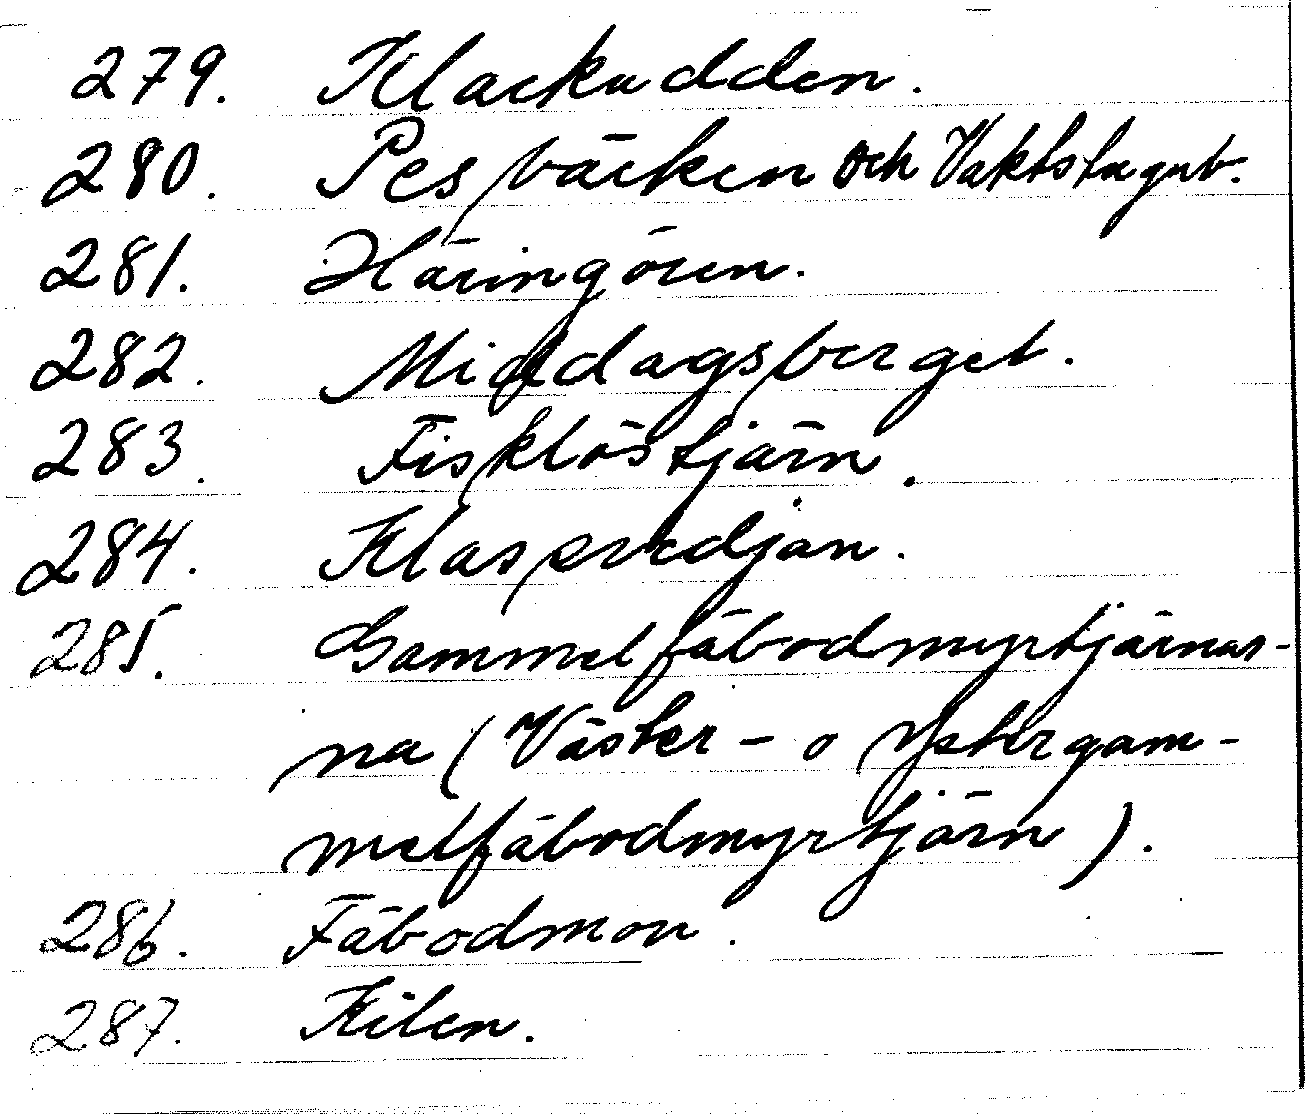 279. Klackudden.
280. Pesbäcken och Vaktstugub.
281. Häringören.
282. Middagsberget.
283. Fisklöstjärn.
284. Klasvedjan.
285. Gammelfäbodmyrtjärnar-
na (Väster- o Ystergam-
melfäbodmyrtjärn).
286. Fäbodmon.
287. Kilen.